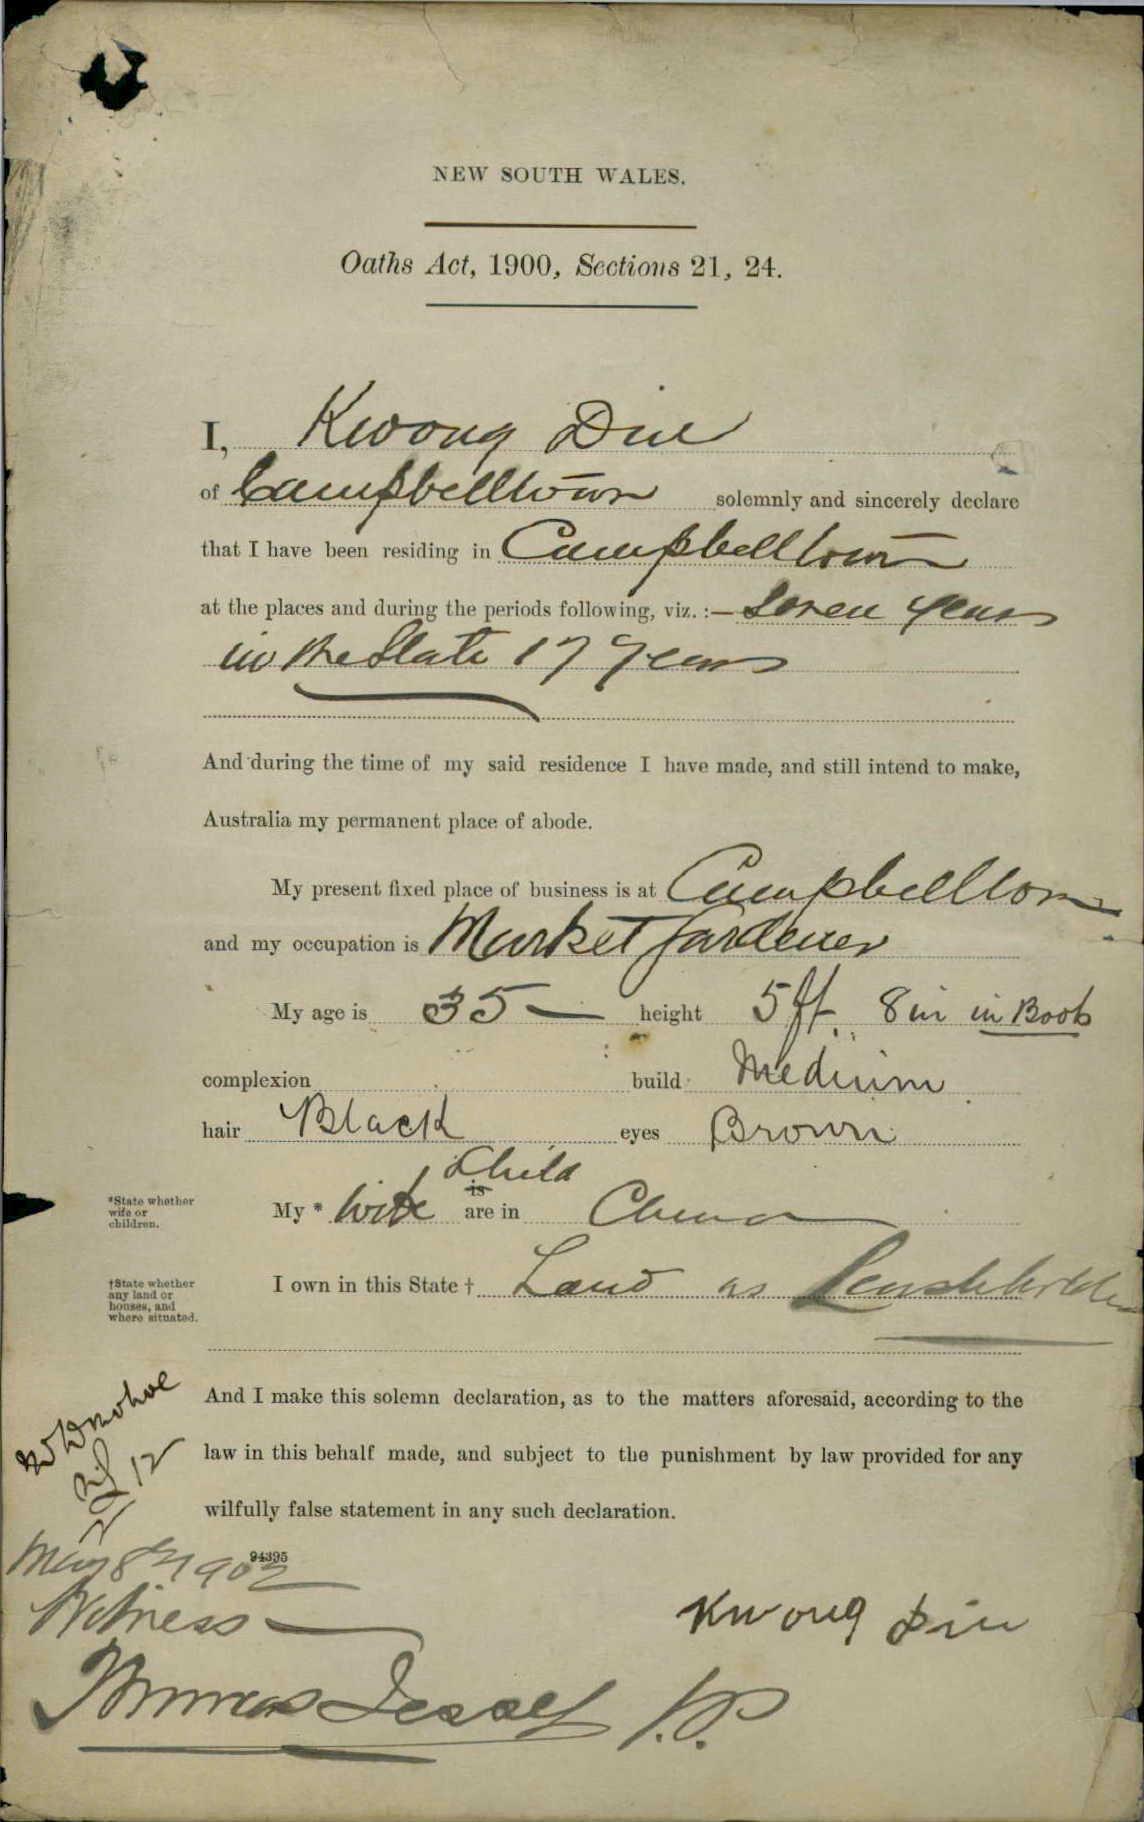 NEW SOUTH WALES.
Oaths Act, 1900, Sections 21, 24.
I, Kwong Din
of Campbelltown solemnly and sincerely declare
that I have been residing in Campbelltown
at the places and during the periods following, viz.:— Seven years
in the State 17 years
And during the time of my said residence I have made, and still intend to make,
Australia my permanent place of abode.
My present fixed place of business is at Campbelltown
and my occupation is Market Gardener
My age is 35 — height 5 ft. 8 in in Boots
complexion build Medium
hair Black eyes Brown
Child
*State whether wife or children.
My * Wife is are in China
†State whether any land or houses, and where situated.
I own in this State † Land as Leaseholder
And I make this solemn declaration, as to the matters aforesaid, according to the
law in this behalf made, and subject to the punishment by law provided for any
wilfully false statement in any such declaration.
W Donohoe
12
94395
May 8th 1902
Witness —
Kwong Din
Thomas J.P.